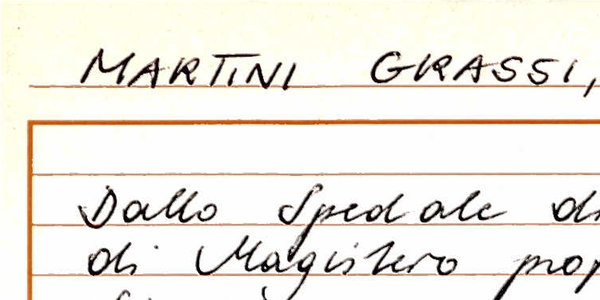 MARTINI GRASSI,
Dallo Spedale di
di Magistero prop